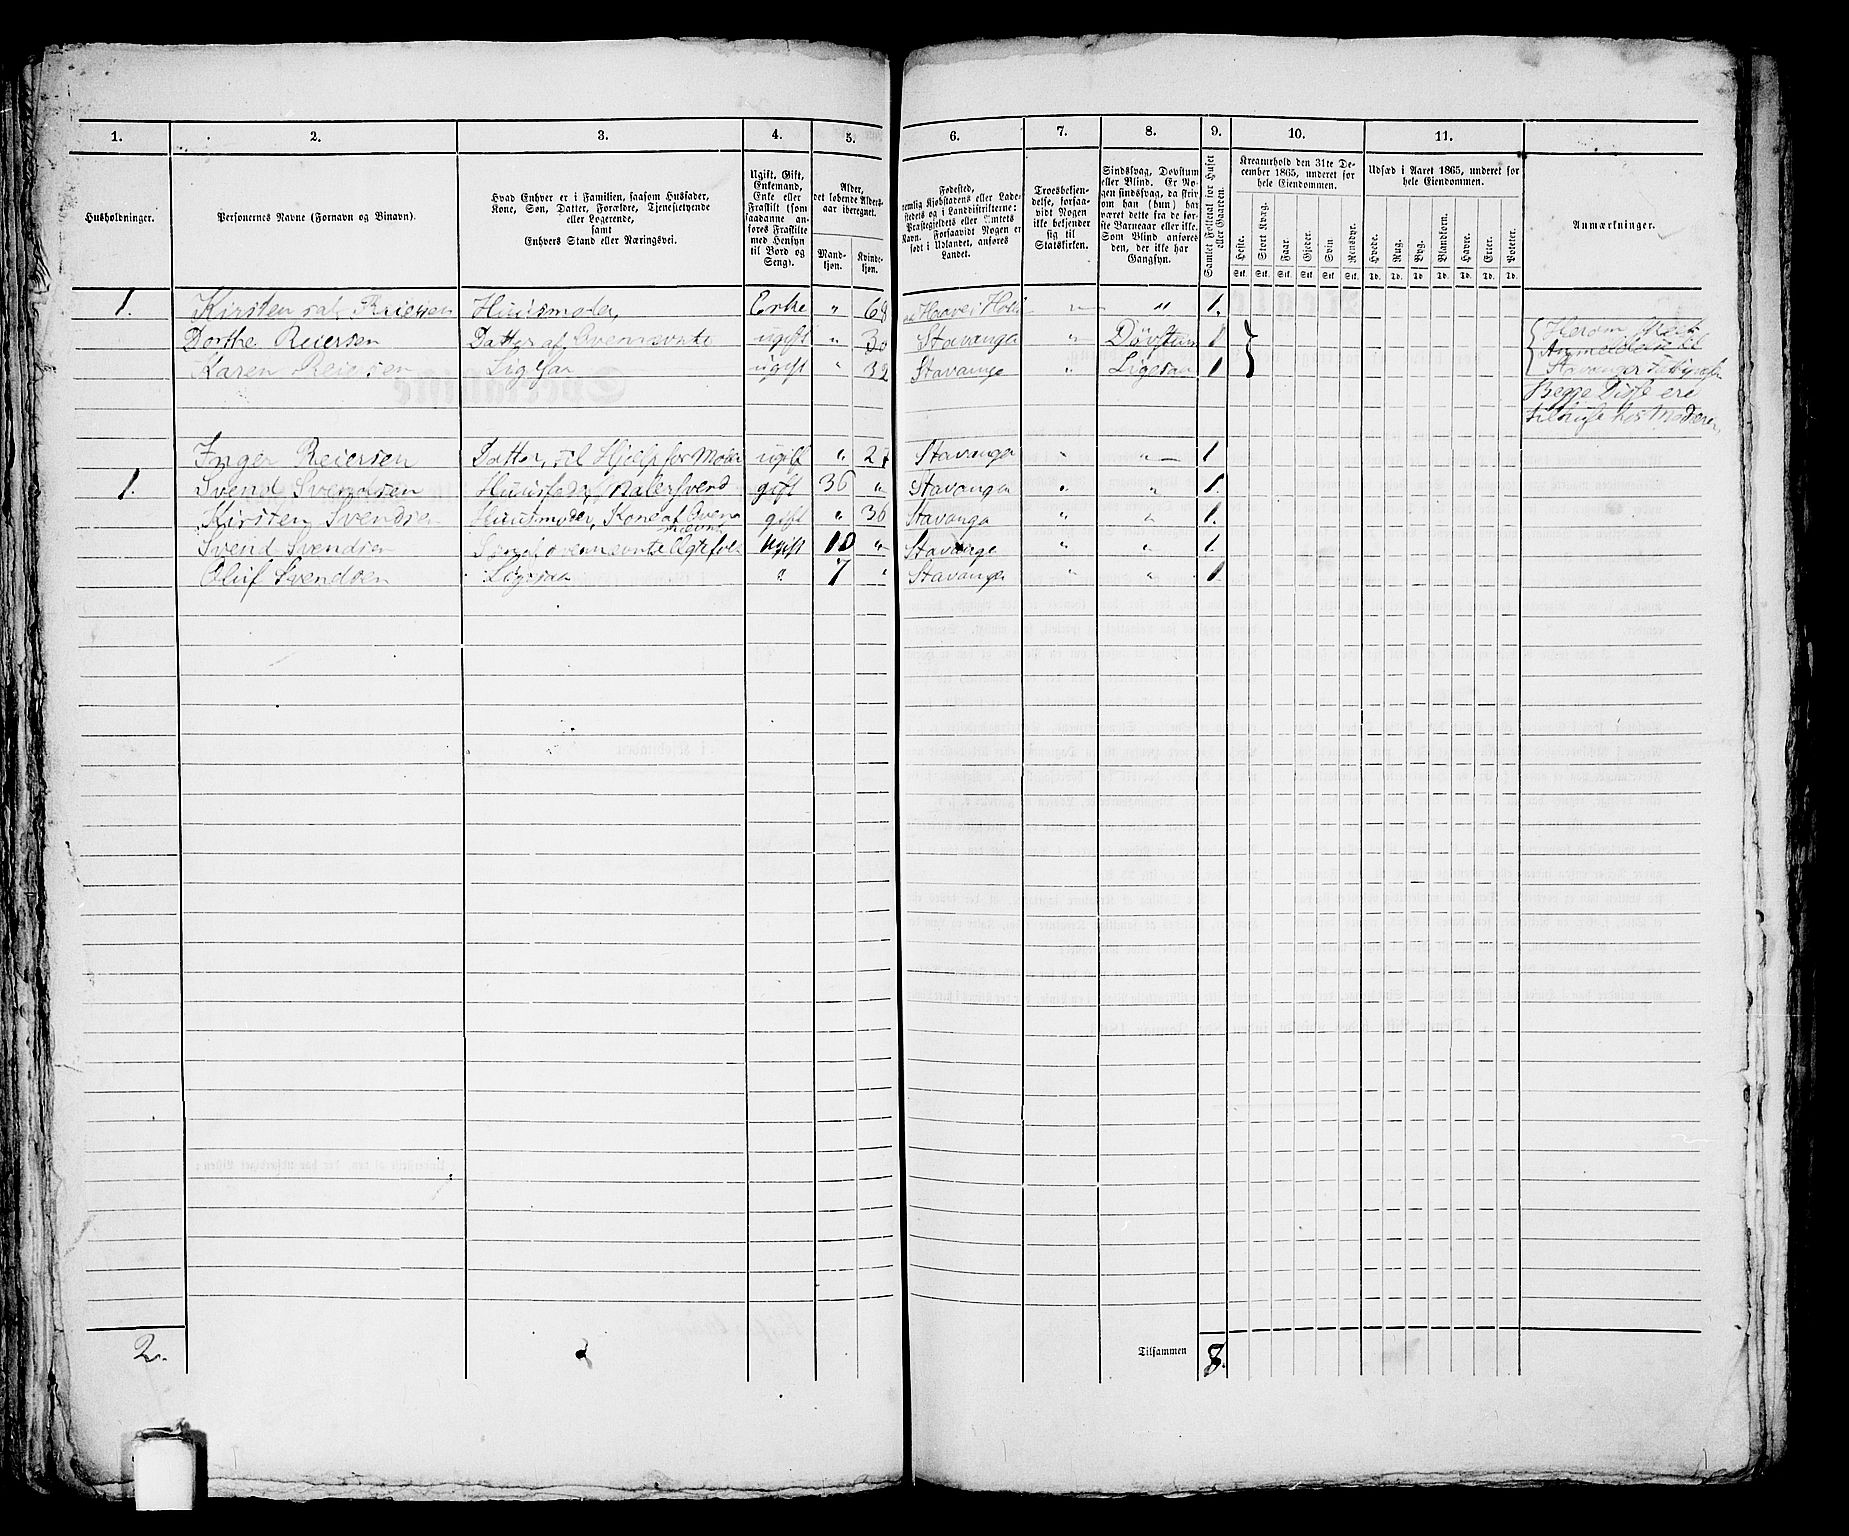 1. 2. 3. 4. 5. 6. 7. 8. 9. 10. 11.
Husholdninger.
Personernes Navne (Fornavn og Binavn).
Hvad Enhver er i Familien, saasom Husfader,
Kone, Søn, Datter, Forældre, Tjenestetyende
eller Logerende,
samt
Enhvers Stand eller Næringsvei.
Ugift, Gift,
Enkemand,
Enke eller
Frastilt (som
saadanne an-
føres Frastilte
med Hensyn
til Bord og
Seng).
Alder,
det løbende Alders-
aar iberegnet.
Mand-
kjøn.
Kvinde-
kjøn.
Fødested,
nemlig Kjøbstadens eller Lade-
stedets og i Landdistrikterne:
Præstegjeldets eller Amtets
Navn. Forsaavidt Nogen er
født i Udlandet, anføres
Landet.
Troesbekjen-
delse, forsaa-
vidt Nogen
ikke bekjender
sig til
Statskirken.
Sindssvag, Døvstum
eller Blind. Er No-
gen sindssvag, da skriv
om han (hun) har
været dette fra de før-
ste Barneaar eller ikke.
Som Blind anføres
den, der ikke har
Gangsyn.
Samlet Folketal for Huset
eller Gaarden.
Kreaturhold den 31te De-
cember 1865, underet for
hele Eiendommen.
Heste.
Stort Kvæg.
Faar.
Gjeder.
Svin.
Rensdyr.
Stk. Stk. Stk. Stk. Stk. Stk.
Udsæd i Aaret 1865, underet for
hele Eiendommen.
Hvede.
Rug.
Byg.
Blandkorn.
Havre.
Erter.
Poteter.
Td. Td. Td. Td. Td. Td. Td.
Anmærkninger.
1. Kirsten Reiersen Huusmoder, Enke " 68 " 1.
Dorthe Reiersen Datter af Ovennævnte ugift " 30 Stavanger Døvstum 1
Karen Reiersen Ligesaa ugift " 32 Stavanger " Ligesaa 1
Herom skeet
Anmeldelse til
Stavanger
Begge Disse ere
tilhuse hos Moderen,
Inger Reiersen Datter, til Hjelp for Moder ugift " 27 Stavanger " " 1
1. Svend Svendsen Huusfader, Malersvend gift 36 " Stavanger " " 1.
Kirsten Svendsen Huusmoder, Kone af Oven
nævnte gift " 36 Stavanger " " 1.
Svend Svendsen Søn af ovennævnte Ægtefolk Ugift 10 " Stavanger " " 1.
Oluf Svendsen Ligesaa " 7 " Stavanger " " 1.
2.
Tilsammen 8.